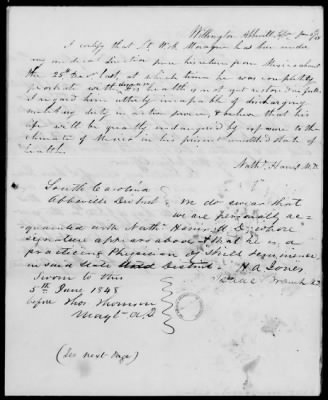 Willington Abbville Dist Jan
I certify that Lt W. A. Moragne has been under
my medical direction since his return from Mexico about
the 25th Decr last, at which time he was completely
prostrate with his health is not yet restored in full.
I regard him utterly incapable of discharging
military duty in active service, & believe that his
life will be greatly endangered by exposure to the
climate of Mexico in his present state of
health.
Nathl Harris M.D.
South Carolina
Abbeville District We do swear that
we are personally ac-
quainted with Nathl Harris M.D. whose
signature appears above & that he is a
practicing Physician of skill & eminence
in said State District. H. A. Jones
Sworn to this Isaac Branch
5th June 1848
before Thos Thomson
Magt A.D.
(See next Page)